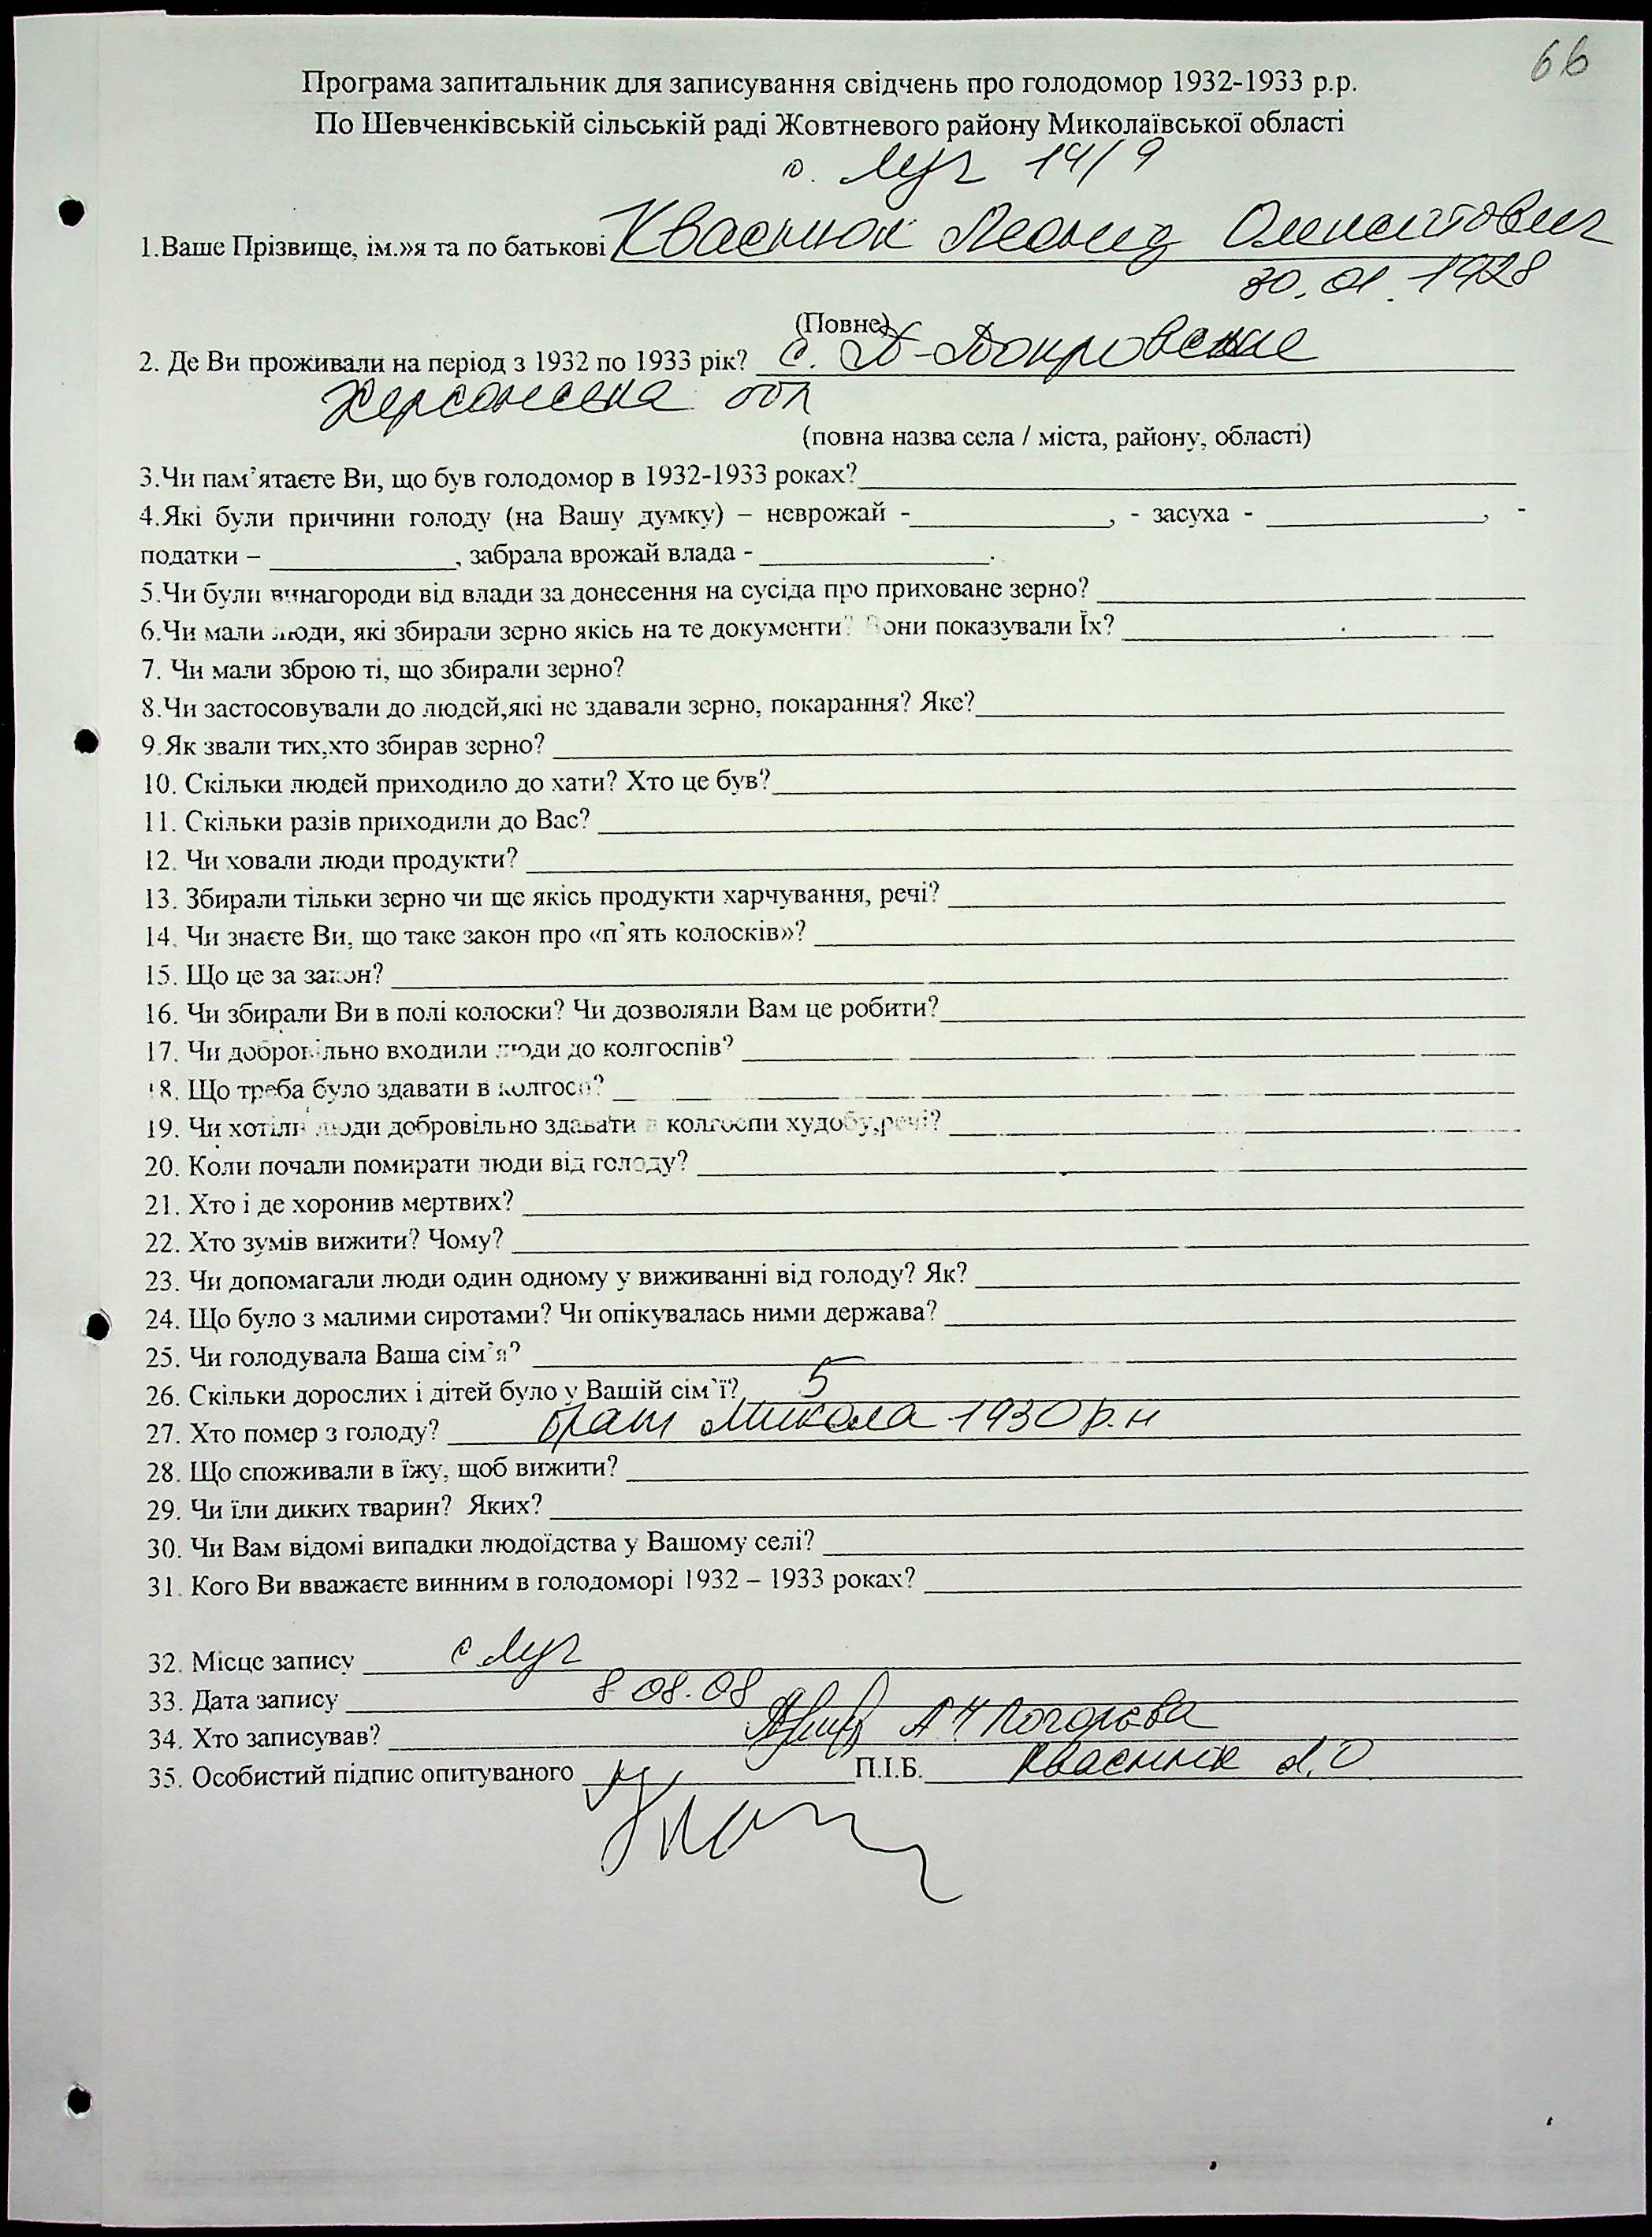 66
Програма запитальник для записування свідчень про голодомор 1932-1933 р.р.
По Шевченківській сільській раді Жовтневого району Миколаївської області
с. Луч 14/9
1.Ваше Прізвище, ім.»я та по батькові Кваснюк Леонид
30.01.1928
(Повне)
2. Де Ви проживали на період з 1932 по 1933 рік? с. -Покровское
Херсонська обл
(повна назва села / міста, району, області)
3.Чи пам’ятаєте Ви, що був голодомор в 1932-1933 роках?
4.Які були причини голоду (на Вашу думку) – неврожай - , - засуха - , -
податки – , забрала врожай влада - .
5.Чи були винагороди від влади за донесення на сусіда про приховане зерно?
6.Чи мали люди, які збирали зерно якісь на те документи? Вони показували Їх?
7. Чи мали зброю ті, що збирали зерно?
8.Чи застосовували до людей,які не здавали зерно, покарання? Яке?
9.Як звали тих,хто збирав зерно?
10. Скільки людей приходило до хати? Хто це був?
11. Скільки разів приходили до Вас?
12. Чи ховали люди продукти?
13. Збирали тільки зерно чи ще якісь продукти харчування, речі?
14. Чи знаєте Ви, що таке закон про «п`ять колосків»?
15. Що це за закон?
16. Чи збирали Ви в полі колоски? Чи дозволяли Вам це робити?
17. Чи добровільно входили люди до колгоспів?
18. Що треба було здавати в колгосп?
19. Чи хотіли люди добровільно здавати в колгоспи худобу,речі?
20. Коли почали помирати люди від голоду?
21. Хто і де хоронив мертвих?
22. Хто зумів вижити? Чому?
23. Чи допомагали люди один одному у виживанні від голоду? Як?
24. Що було з малими сиротами? Чи опікувалась ними держава?
25. Чи голодувала Ваша сім`я?
26. Скільки дорослих і дітей було у Вашій сім`ї? 5
27. Хто помер з голоду? брат Микола 1930 р.н
28. Що споживали в їжу, щоб вижити?
29. Чи їли диких тварин? Яких?
30. Чи Вам відомі випадки людоїдства у Вашому селі?
31. Кого Ви вважаєте винним в голодоморі 1932 – 1933 роках?
32. Місце запису с Луч
33. Дата запису 8 08.08
34. Хто записував? А Н
35. Особистий підпис опитуваного П.І.Б. Кваснюк Л.О